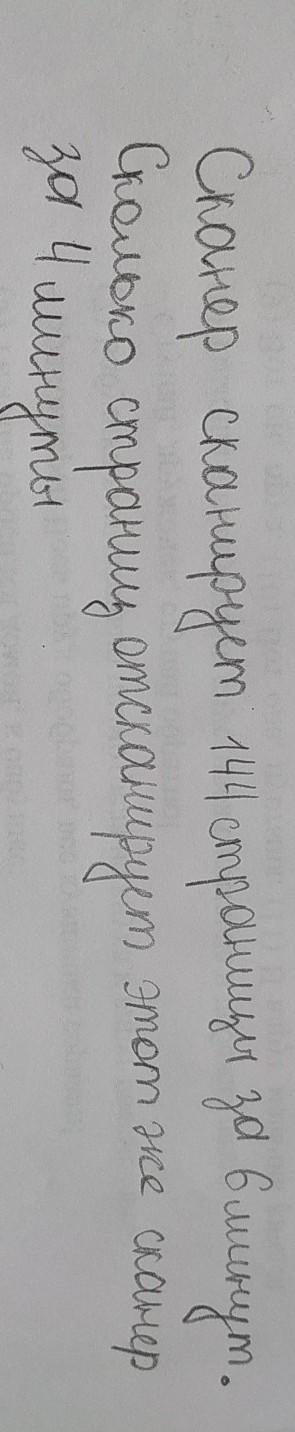 Сканер сканирует 144 страницы за 6 минут.
Сколько страниц отсканирует этот же сканер
за 4 минуты